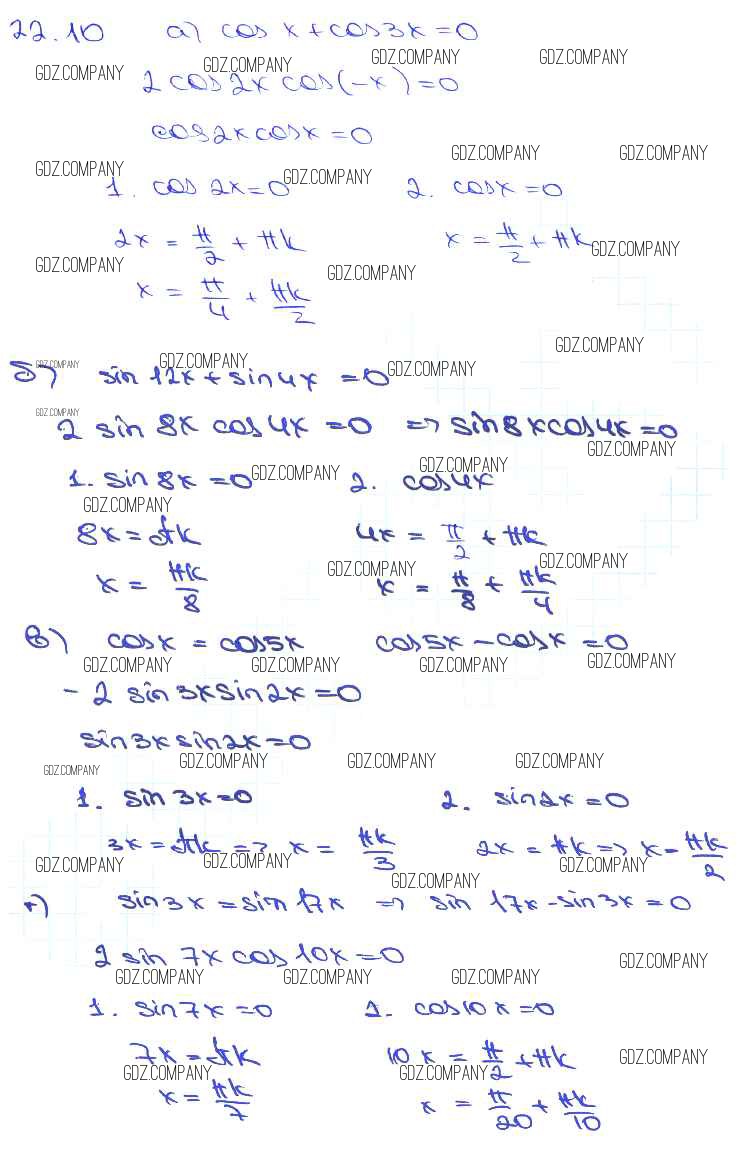 22.10 а) cos x + cos 3x = 0
GDZ.COMPANY GDZ.COMPANY GDZ.COMPANY GDZ.COMPANY
2 cos 2x cos(-x) = 0
cos 2x cos x = 0
GDZ.COMPANY GDZ.COMPANY
GDZ.COMPANY GDZ.COMPANY
1. cos 2x = 0 2. cos x = 0
2x = π/2 + πk x = π/2 + πk
GDZ.COMPANY GDZ.COMPANY GDZ.COMPANY
x = π/4 + πk/2
GDZ.COMPANY
GDZ.COMPANY GDZ.COMPANY GDZ.COMPANY
б) sin 12x + sin 4x = 0
GDZ.COMPANY
2 sin 8x cos 4x = 0 => sin 8x cos 4x = 0
GDZ.COMPANY
GDZ.COMPANY GDZ.COMPANY
1. sin 8x = 0 2. cos 4x
GDZ.COMPANY
8x = πk 4x = π/2 + πk
GDZ.COMPANY GDZ.COMPANY
x = πk/8 x = π/8 + πk/4
в) cos x = cos 5x cos 5x - cos x = 0
GDZ.COMPANY GDZ.COMPANY GDZ.COMPANY GDZ.COMPANY
- 2 sin 3x sin 2x = 0
sin 3x sin 2x = 0
GDZ.COMPANY GDZ.COMPANY GDZ.COMPANY GDZ.COMPANY
1. sin 3x = 0 2. sin 2x = 0
3x = πk => x = πk/3 2x = πk => x = πk/2
GDZ.COMPANY GDZ.COMPANY GDZ.COMPANY GDZ.COMPANY
г) sin 3x = sin 17x => sin 17x - sin 3x = 0
2 sin 7x cos 10x = 0
GDZ.COMPANY GDZ.COMPANY GDZ.COMPANY GDZ.COMPANY
1. sin 7x = 0 2. cos 10x = 0
7x = πk 10x = π/2 + πk
GDZ.COMPANY GDZ.COMPANY GDZ.COMPANY
x = πk/7 x = π/20 + πk/10